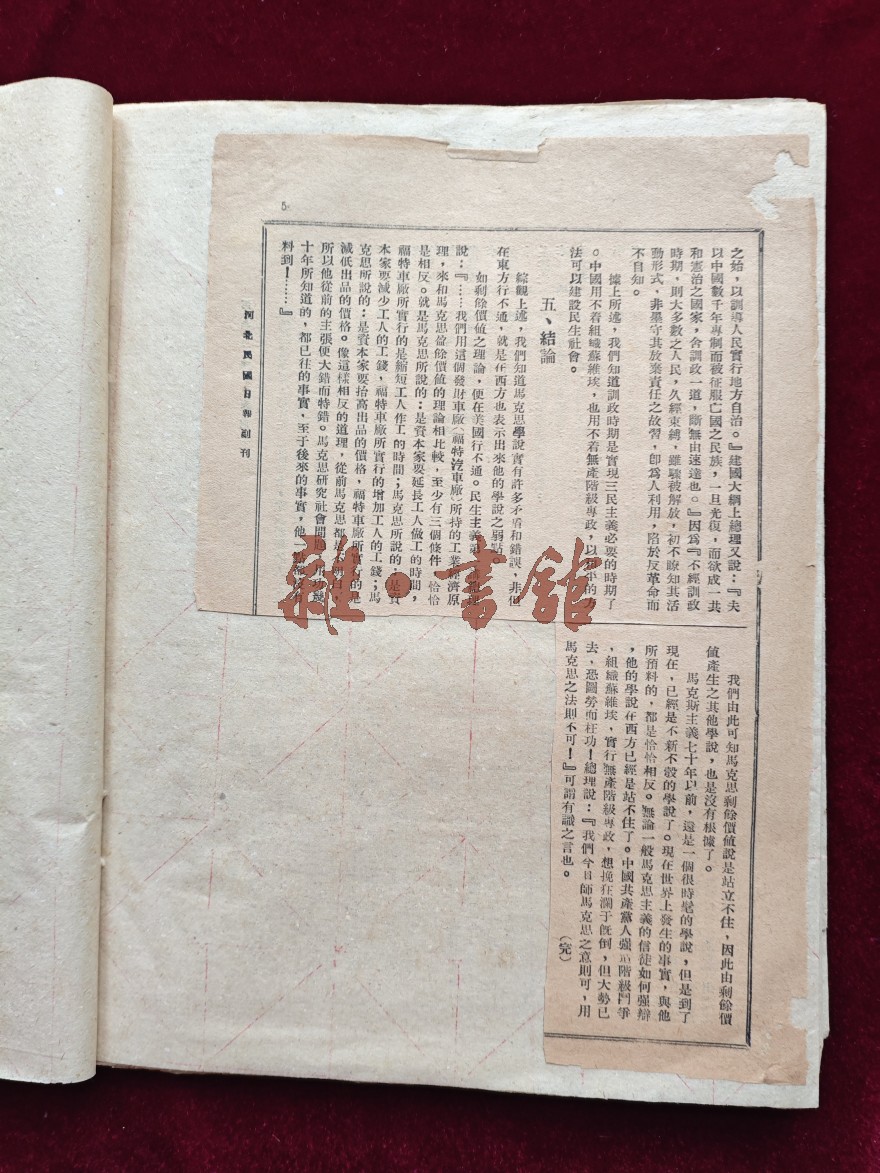 5
之始，以訓導人民實行地方自治。』建國大綱上總理又說：『夫
以中國數千年專制而被征服亡國之民族，一旦光復，而欲成一共
和憲治之國家，舍訓政一道，斷無由速達也。』因爲『不經訓政
時期，則大多數之人民，久經束縛，雖驟被解放，初不瞭知其活
動形式，非墨守其放棄責任之故習，卽爲人利用，陷於反革命而
不自知。
據上所述，我們知道訓政時期是實現三民主義必要的時期了
。中國用不着組織蘇維埃，也用不着無產階級專政，以和平的方
法可以建設民生社會。
五、結論
綜觀上述，我們知道馬克思學說實有許多矛盾和錯誤，非但
在東方行不通，就是在西方也表示出來他的學說之弱點
如剩餘價值之理論，便在美國行不通。民生主義
說：『……我們用這個發財車廠（福特汽車廠）所持的工業經濟原
理，來和馬克思盈餘價值的理論相比較，至少有三個條件 恰恰
是相反。就是馬克思所說的：是資本家要延長工人做工的時間，
福特車廠所實行的是縮短工人作工的時間；馬克思所說的：是資
本家要減少工人的工錢，福特車廠所實行的增加工人的工錢；馬
克思所說的：是資本家要抬高出品的價格，福特車廠所實行的是
減低出品的價格。像這樣相反的道理，從前馬克思都
所以他從前的主張便大錯而特錯。馬克思研究社會問題
十年所知道的，都已往的事實，至于後來的事實，他一點
料到！……』
河北民國日報副刊
我們由此可知馬克思剩餘價值說是站立不住，因此由剩餘價
值產生之其他學說，也是沒有根據了。
馬克斯主義七十年以前，還是一個很時髦的學說，但是到了
現在，已經是不新不穀的學說了。現在世界上發生的事實，與他
所預料的，都是恰恰相反。無論一般馬克思主義的信徒如何强辯
，他的學說在西方已經是站不住了。中國共產黨人强 階級鬥爭
，組織蘇維埃，實行無產階級專政，想挽狂瀾于旣倒，但大勢已
去，恐圖勞而枉功！總理說：『我們今日師馬克思之意則可，用
馬克思之法則不可！』可謂有識之言也。
（完）
雜·書館